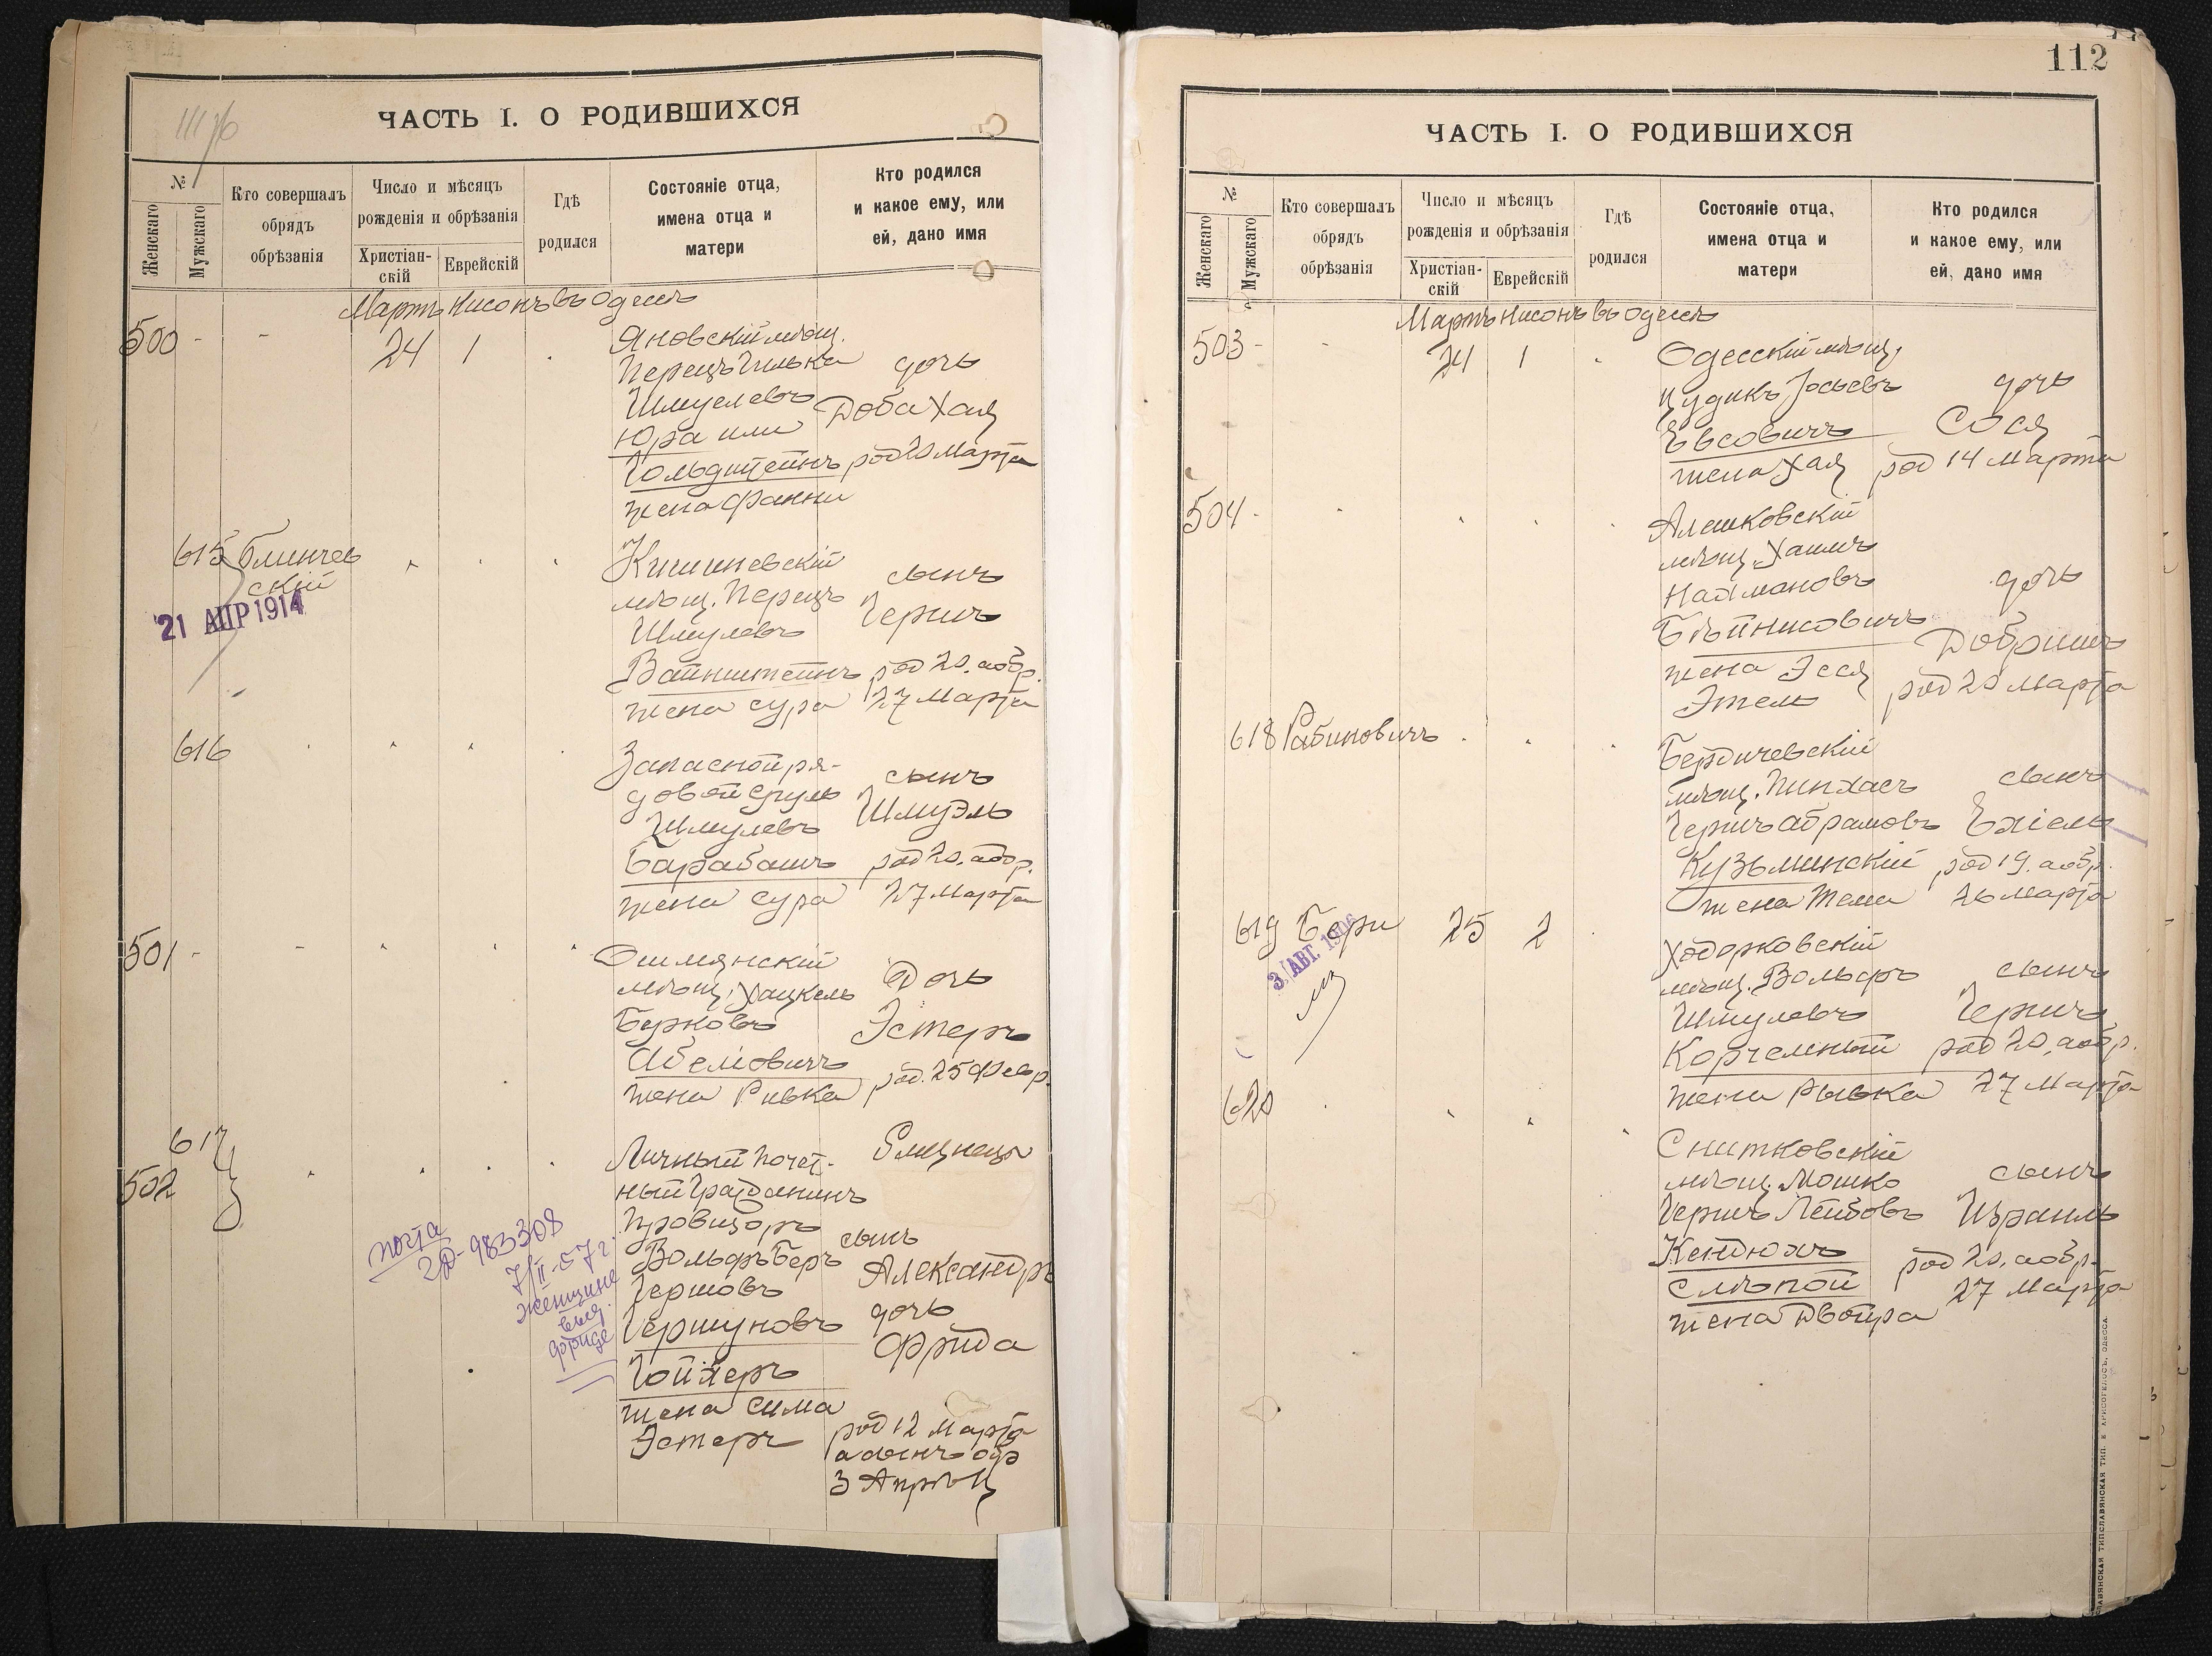 ЧАСТЬ I. О РОДИВШИХСЯ
№
Женскаго
Мужскаго
Кто совершалъ
обрядъ
обрѣзанія
Число и мѣсяцъ
рожденія и обрѣзанія
Христіан-
скій
Еврейскій
Гдѣ
родился
Состояніе отца,
имена отца и
матери
Кто родился
и какое ему, или
ей, дано имя
Мартъ Нисонъ въ Одессѣ
500 - - 24 1
Яновскій мѣщ.
Перецъ Гилька
Шмуелевъ
Юра или
Гольдштейнъ
жена Фанни
дочь
Доба Хая
род 20 Марта
615
21 АПР 1914
Кишиневскій
мѣщ. Перецъ
Шмулевъ
Вайнштейнъ
жена Сура
сынъ
Гершъ
род 20. а обр.
27 Марта
616
Запасной ря-
довой Сруль
Шмулевъ
Барабашъ
жена Сура
сынъ
Шмуэль
род 20. а обр.
27 Марта
501 - -
Ошмянскій
мѣщ. Хацкель
Берковъ
Абелiовичъ
жена Ривка
Дочь
Эстеръ
род. 25 Февр.
617
502
Личный почет-
ный Гражданинъ
Провизоръ
Вольфъ Беръ
Гершовъ
Гершуновъ
жена Сима
Эстеръ
Близнецы
сынъ
Александръ
дочь
Фрида
род 12 Марта
а сынъ обр
3 Апрѣля
почта
983308
7/II-57 г.
женщине
выд.
Фриде
112
ЧАСТЬ I. О РОДИВШИХСЯ
№
Женскаго
Мужскаго
Кто совершалъ
обрядъ
обрѣзанія
Число и мѣсяцъ
рожденія и обрѣзанія
Христіан-
скій
Еврейскій
Гдѣ
родился
Состояніе отца,
имена отца и
матери
Кто родился
и какое ему, или
ей, дано имя
Мартъ Нисонъ въ Одессѣ
503 - - 24 1
Одесскій мѣщ.
Цудикъ Іосьевъ
Евсовичъ
жена Хая
дочь
Сося
род 14 Марта
504 -
Алешковскій
мѣщ. Хаимъ
Нахмановъ
жена Эся
Этель
дочь
Добришъ
род 20 Марта
618 Рабиновичъ
Бердичевскій
мѣщ. Пинхасъ
Гершъ Абрамовъ
Кузьминскій
жена Тема
сынъ
Ехіель
род 19. а обр.
26 Марта
619 Бери 25 2
3. АВГ. 1906
Ходорковскій
мѣщ. Вольфъ
Шмулевъ
Корчемный
жена Рывка
сынъ
Гершъ
род 20. а обр.
27 Марта
620
Снитковскій
мѣщ. Мошко
Гершъ Лейбовъ
Кендюхъ
Слѣпой
жена Двойра
сынъ
Израиль
род 20. а обр.
27 Марта